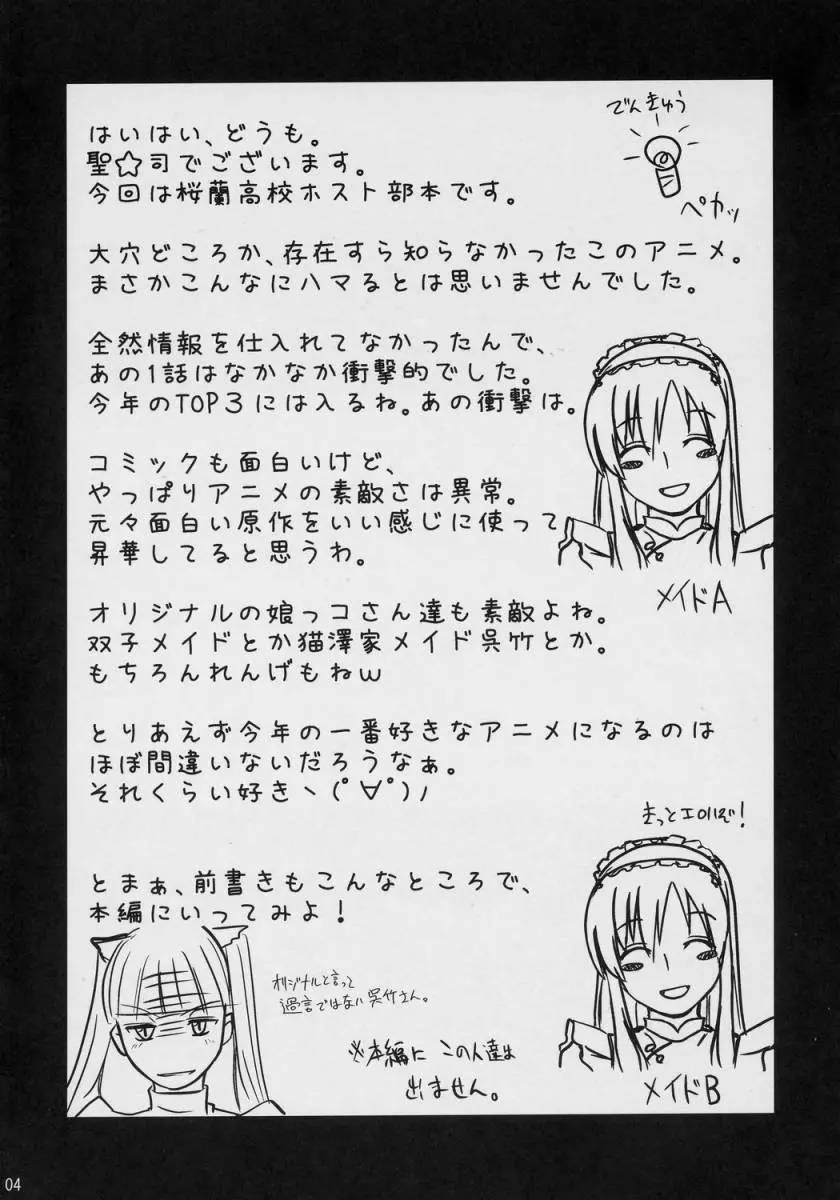 でんきゅう
ペカッ
はいはい、どうも。
聖☆司でございます。
今回は桜蘭高校ホスト部本です。
大穴どころか、存在すら知らなかったこのアニメ。
まさかこんなにハマるとは思いませんでした。
全然情報を仕入れてなかったんで、
あの1話はなかなか衝撃的でした。
今年のTOP3には入るね。あの衝撃は。
コミックも面白いけど、
やっぱりアニメの素敵さは異常。
元々面白い原作をいい感じに使って
昇華してると思うわ。
メイドA
オリジナルの娘っコさん達も素敵よね。
双子メイドとか猫澤家メイド呉竹とか。
もちろんれんげもねw
とりあえず今年の一番好きなアニメになるのは
ほぼ間違いないだろうなぁ。
それくらい好きヽ(ﾟ∀ﾟ)ﾉ
きっとエロいぞ!
とまぁ、前書きもこんなところで、
本編にいってみよ!
オリジナルと言って
過言ではない呉竹さん。
※本編にこの人達は
出ません。
メイドB
04